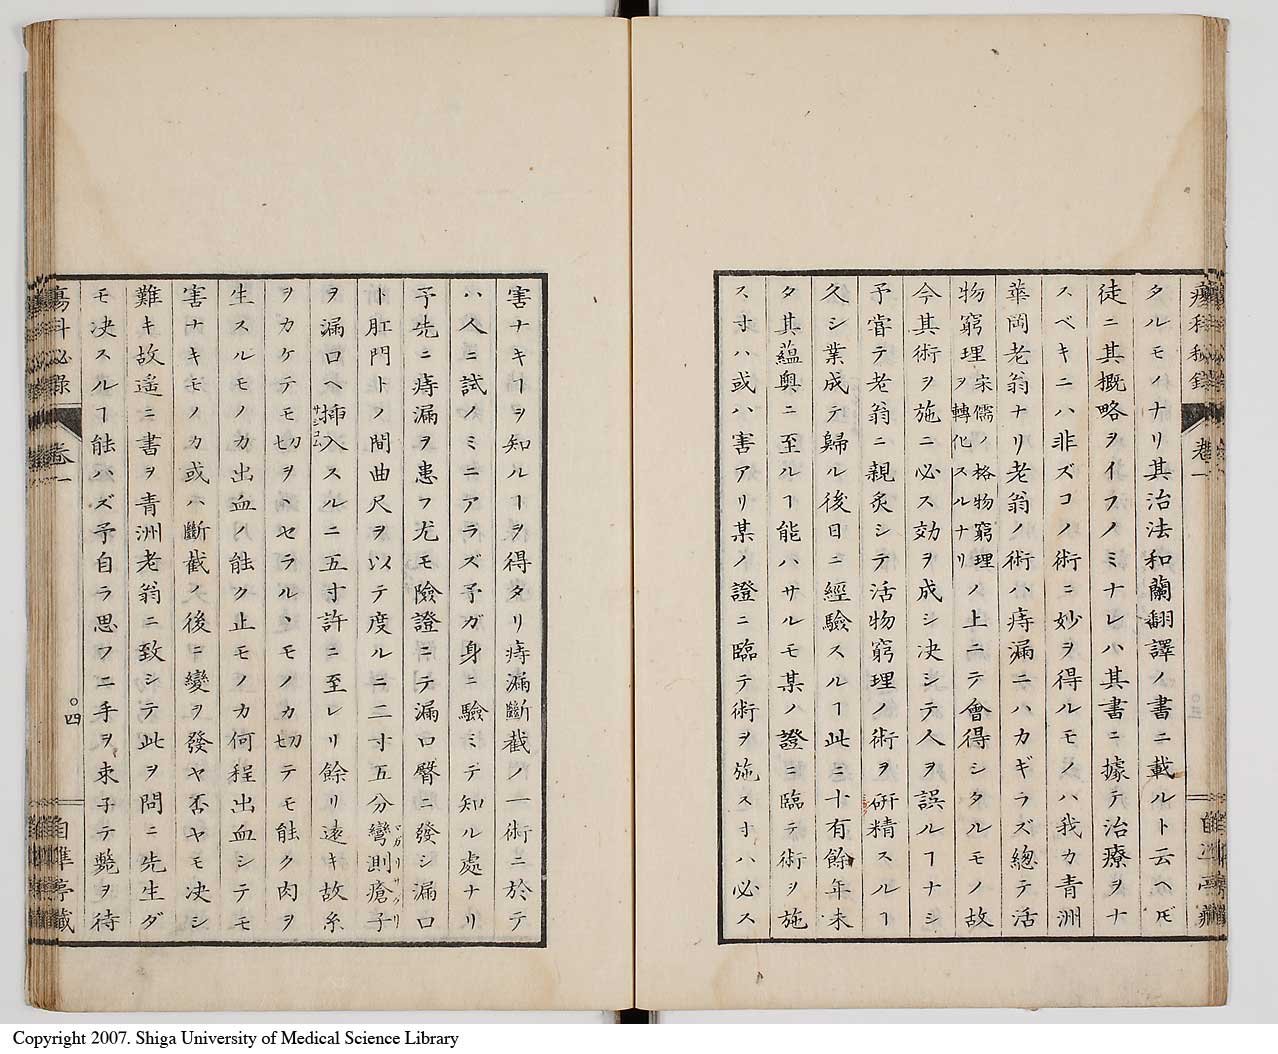 瘍科秘録 卷一
タルモノナリ其治法和蘭翻譯ノ書ニ載ルト云ヘ𪜈
徒ニ其概略ヲイフノミナレハ其書ニ據テ治療ヲナ
スベキニハ非ズコノ術ニ妙ヲ得ルモノハ我カ青洲
華岡老翁ナリ老翁ノ術ハ痔漏ニハカギラズ總テ活
物窮理宋儒ノ格物窮理ヲ轉化スルナリノ上ニテ會得シタルモノ故
今其術ヲ施ニ必ス効ヲ成シ决シテ人ヲ誤ルヿナシ
予甞テ老翁ニ親炙シテ活物窮理ノ術ヲ硏精スルヿ
久シ業成テ歸ル後日ニ經驗スルヿ此ニ十有餘年未
タ其蘊奥ニ至ルヿ能ハサルモ某ノ證ニ臨テ術ヲ施
スヰハ或ハ害アリ某ノ證ニ臨テ術ヲ施スヰハ必ス
害ナキヿヲ知ルヿヲ得タリ痔漏斷截ノ一術ニ於テ
ハ人ニ試ノミニアラズ予ガ身ニ驗ミテ知ル處ナリ
予先ニ痔漏ヲ患フ尤モ險證ニテ漏口臀ニ發シ漏口
ト肛門トノ間曲尺ヲ以テ度ルニ二寸五分彎測瘡子
ヲ漏口ヘ挿入スルニ五寸許ニ至レリ餘リ遠キ故糸
ヲカケテモ切ヲヽセラルヽモノカ切テモ能ク肉ヲ
生スルモノカ出血ノ能ク止モノカ何程出血シテモ
害ナキモノカ或ハ斷截ノ後ニ變ヲ發ヤ否ヤモ决シ
難キ故遙ニ書ヲ青洲老翁ニ致シテ此ヲ問ニ先生ダ
モ决スルヿ能ハズ予自ラ思フニ手ヲ束子テ斃ヲ待
瘍科秘録 卷一 〇四 自準亭藏